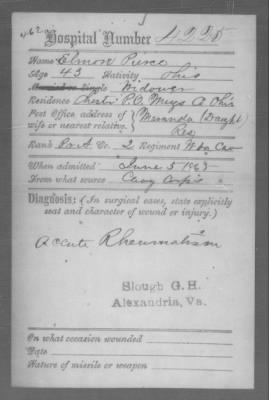 Hospital Number 4225
Name Elmore Pierce
Age 43 Nativity Ohio
Married or Single Widower
Residence Chester P.O. Meigs Co Ohio
Post Office address of
wife or nearest relative. (Daught)
Res
Rank Pvt. Co. 2 Regiment Cav
When admitted June 5 1865
From what source Cavy Corps
Diagnosis: (In surgical cases, state explicitly
seat and character of wound or injury.)
Accute Rheumatism
Slough G. H.
Alexandria, Va.
On what occasion wounded
Date
Nature of missile or weapon